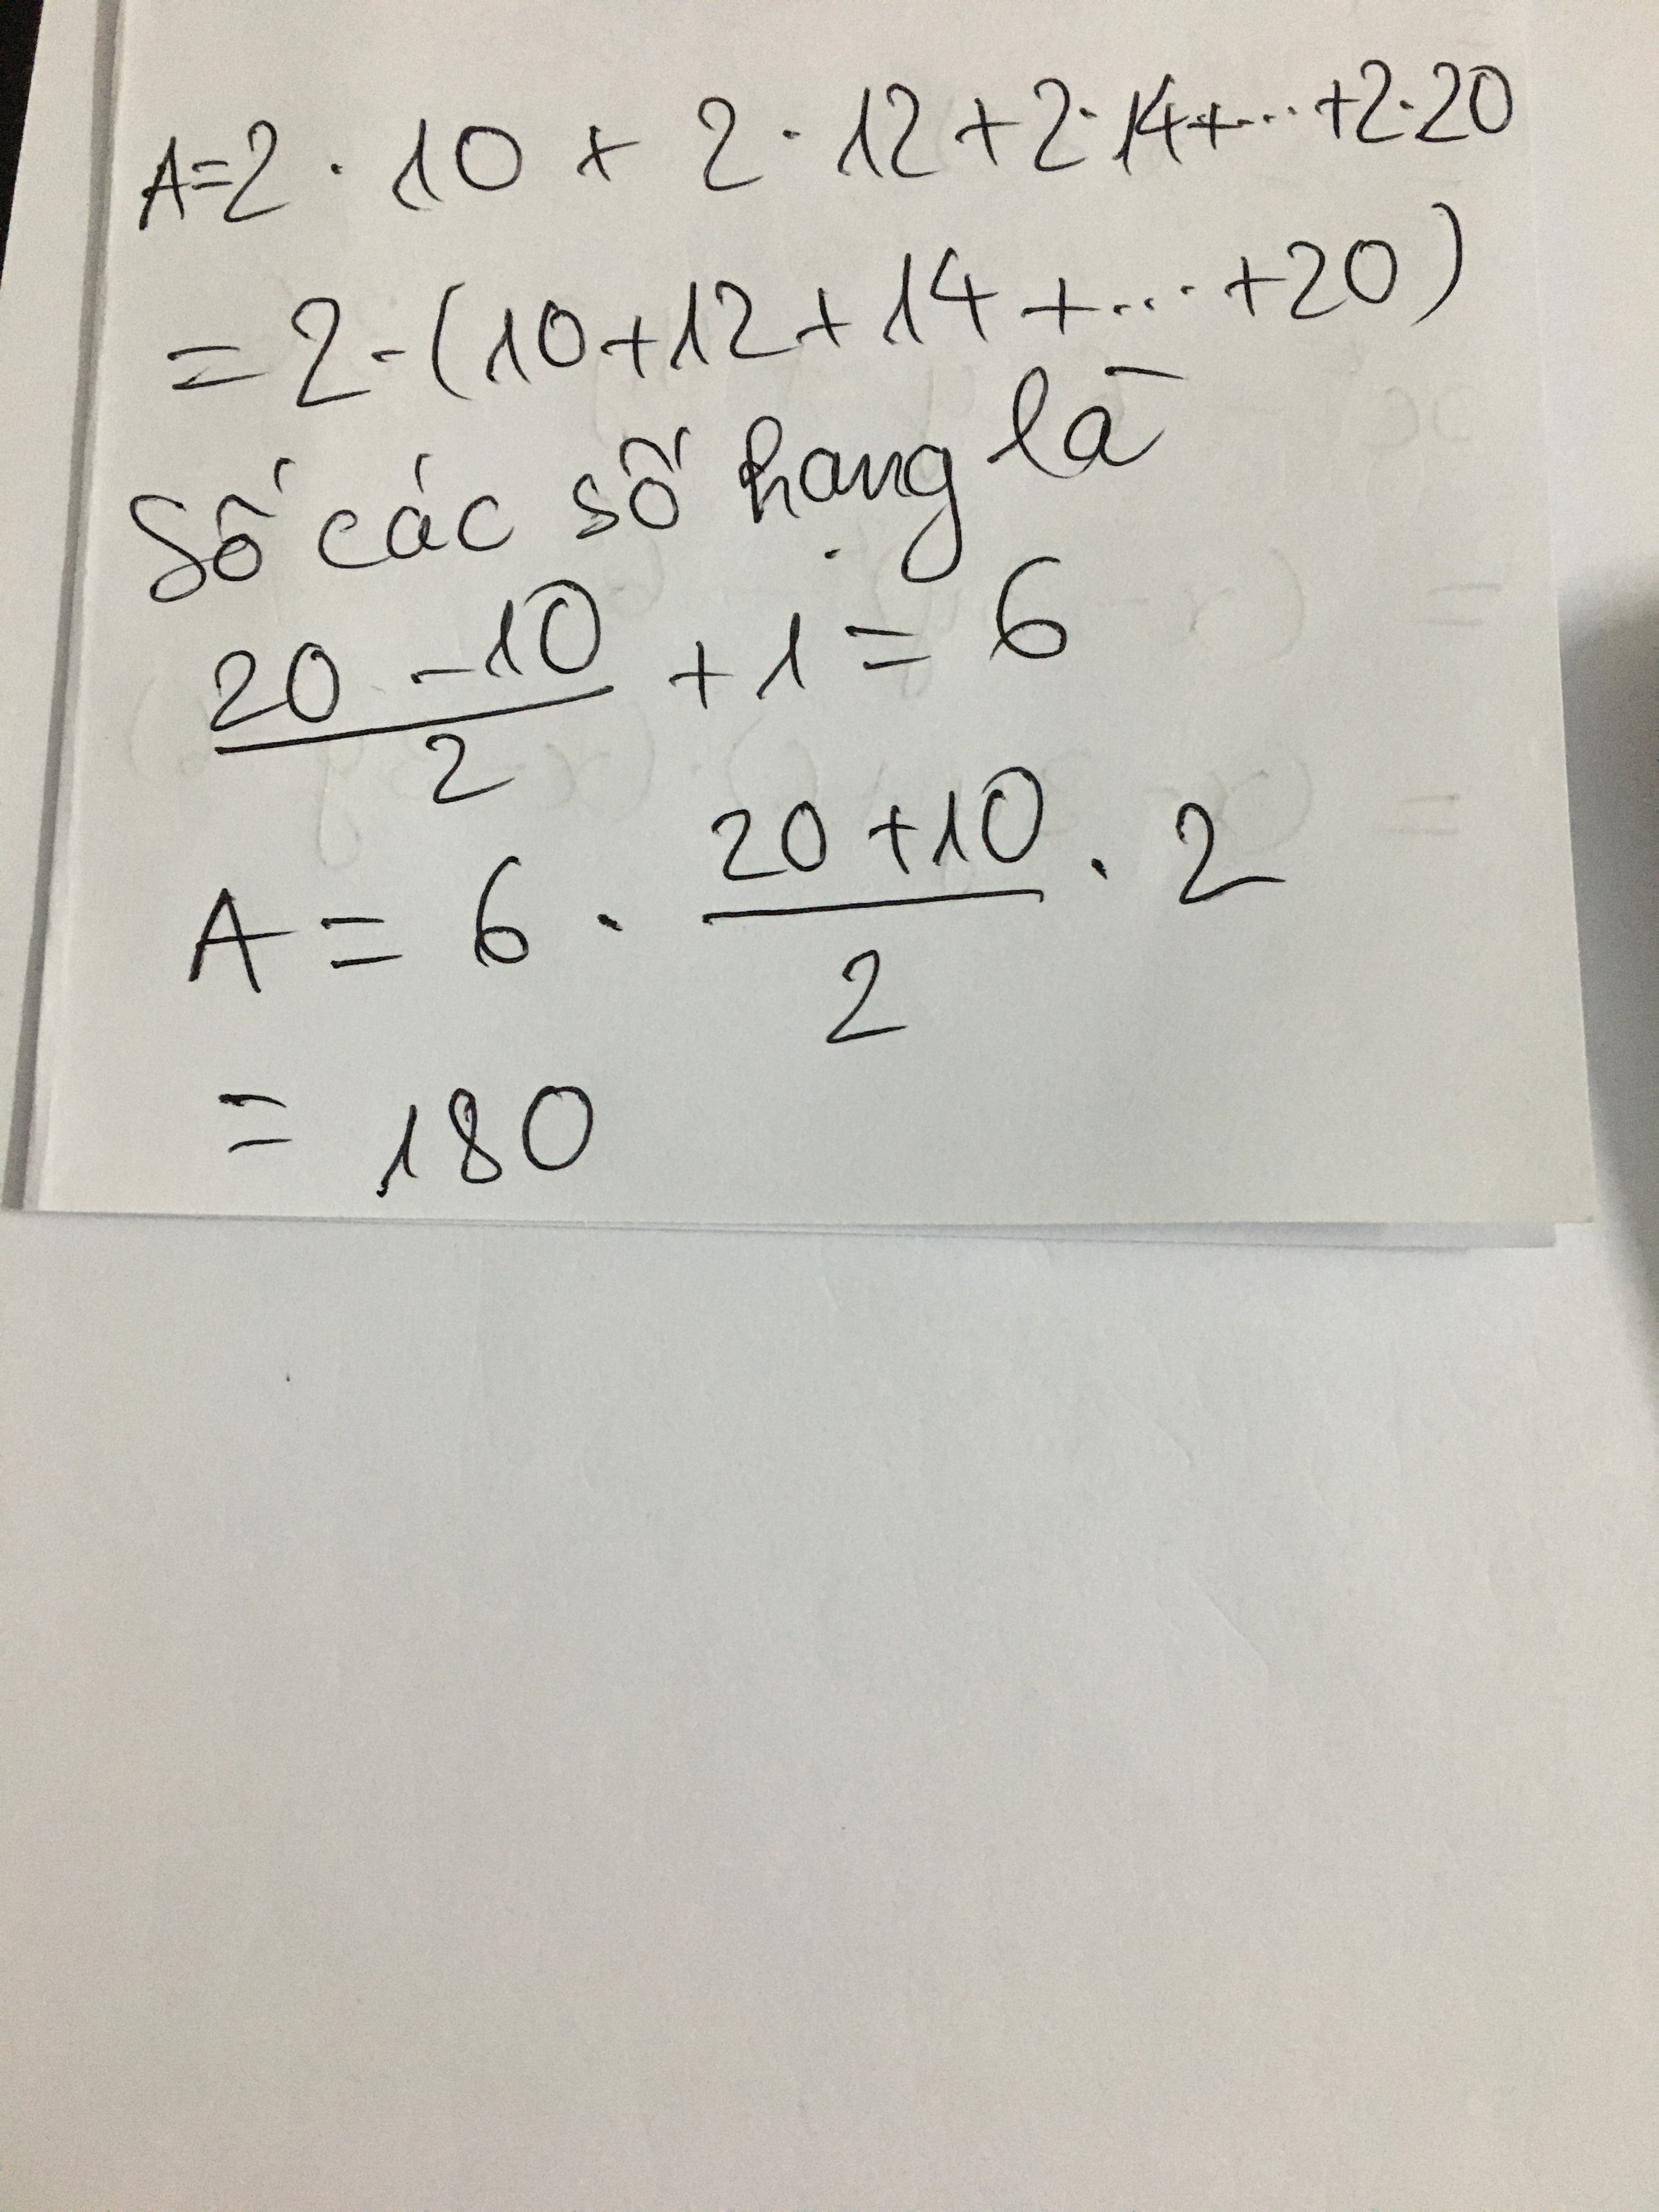 A=2·10+2·12+2·14+...+2·20
=2·(10+12+14+...+20)
Số các số hạng là
\frac{20-10}{2}+1=6
A=6·\frac{20+10}{2}·2
=180